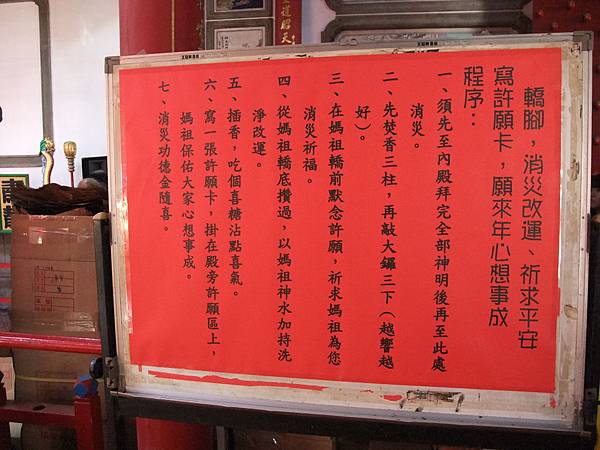 轎腳，消災改運、祈求平安
寫許願卡，願來年心想事成
程序：
一、須先至內殿拜完全部神明後再至此處
消災。
二、先焚香三柱，再敲大鑼三下（越響越
好）。
三、在媽祖轎前默念許願，祈求媽祖為您
消災祈福。
四、從媽祖轎底攢過，以媽祖神水加持洗
淨改運。
五、插香，吃個喜糖沾點喜氣。
六、寫一張許願卡，掛在殿旁許願區上，
媽祖保佑大家心想事成。
七、消災功德金隨喜。